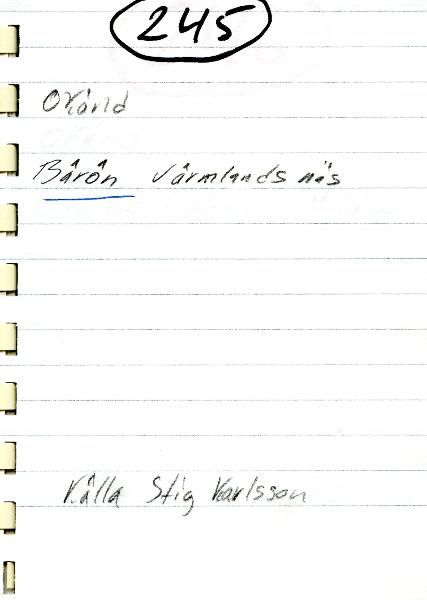 245
Okänd
Bärön Värmlands näs
Källa Stig Karlsson